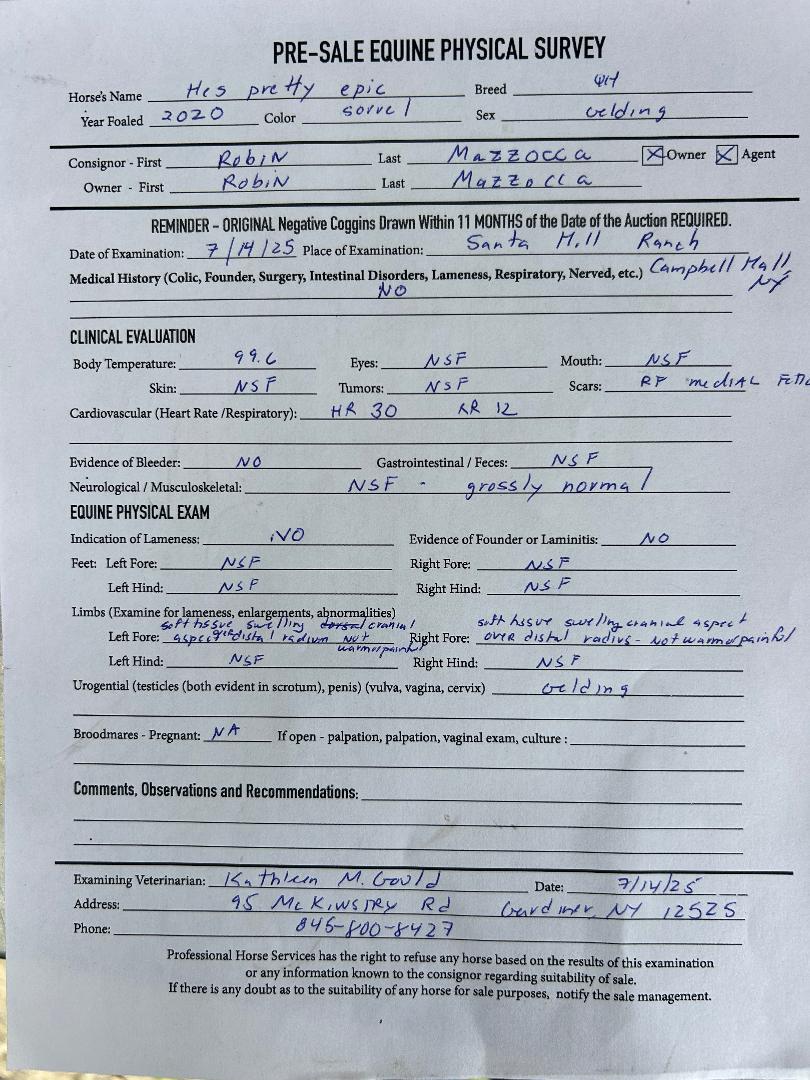 PRE-SALE EQUINE PHYSICAL SURVEY
Horse's Name Hes pretty epic Breed QH
Year Foaled 2020 Color sorrel Sex Gelding
Consignor - First Robin Last Mazzocca ☒ Owner ☒ Agent
Owner - First Robin Last Mazzocca
REMINDER – ORIGINAL Negative Coggins Drawn Within 11 MONTHS of the Date of the Auction REQUIRED.
Date of Examination: 7/14/25 Place of Examination: Santa Hill Ranch
Medical History (Colic, Founder, Surgery, Intestinal Disorders, Lameness, Respiratory, Nerved, etc.) Campbell Hall,
NO NY
CLINICAL EVALUATION
Body Temperature: 99.6 Eyes: NSF Mouth: NSF
Skin: NSF Tumors: NSF Scars: RF medial
Cardiovascular (Heart Rate /Respiratory): HR 30 RR 12
Evidence of Bleeder: NO Gastrointestinal / Feces: NSF
Neurological / Musculoskeletal: NSF - grossly normal
EQUINE PHYSICAL EXAM
Indication of Lameness: NO Evidence of Founder or Laminitis: NO
Feet: Left Fore: NSF Right Fore: NSF
Left Hind: NSF Right Hind: NSF
Limbs (Examine for lameness, enlargements, abnormalities)
soft tissue swelling dorsal cranial soft tissue swelling cranial aspect
Left Fore: aspect distal radium not Right Fore: over distal radius - not warm or painful
warm or painful
Left Hind: NSF Right Hind: NSF
Urogential (testicles (both evident in scrotum), penis) (vulva, vagina, cervix) Gelding
Broodmares - Pregnant: NA If open - palpation, palpation, vaginal exam, culture :
Comments, Observations and Recommendations:
Examining Veterinarian: Kathleen M. Gould Date: 7/14/25
Address: 95 McKinstry Rd Gardiner, NY 12525
Phone: 845-800-8427
Professional Horse Services has the right to refuse any horse based on the results of this examination
or any information known to the consignor regarding suitability of sale.
If there is any doubt as to the suitability of any horse for sale purposes, notify the sale management.